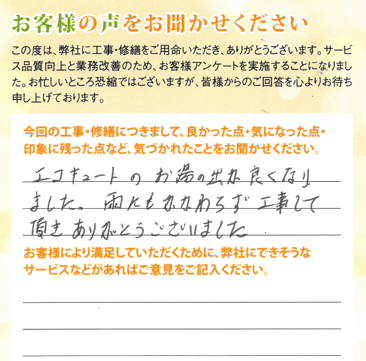 お客様の声をお聞かせください
この度は、弊社に工事・修繕をご用命いただき、ありがとうございます。サービ
ス品質向上と業務改善のため、お客様アンケートを実施することになりまし
た。お忙しいところ恐縮ではございますが、皆様からのご回答を心よりお待ち
申し上げております。
今回の工事・修繕につきまして、良かった点・気になった点・
印象に残った点など、気づかれたことをお聞かせください。
エコキュートの お湯の出が良くなり
ました。雨にもかかわらず工事して
頂きありがとうございました
お客様により満足していただくために、弊社にできそうな
サービスなどがあればご意見をご記入ください。